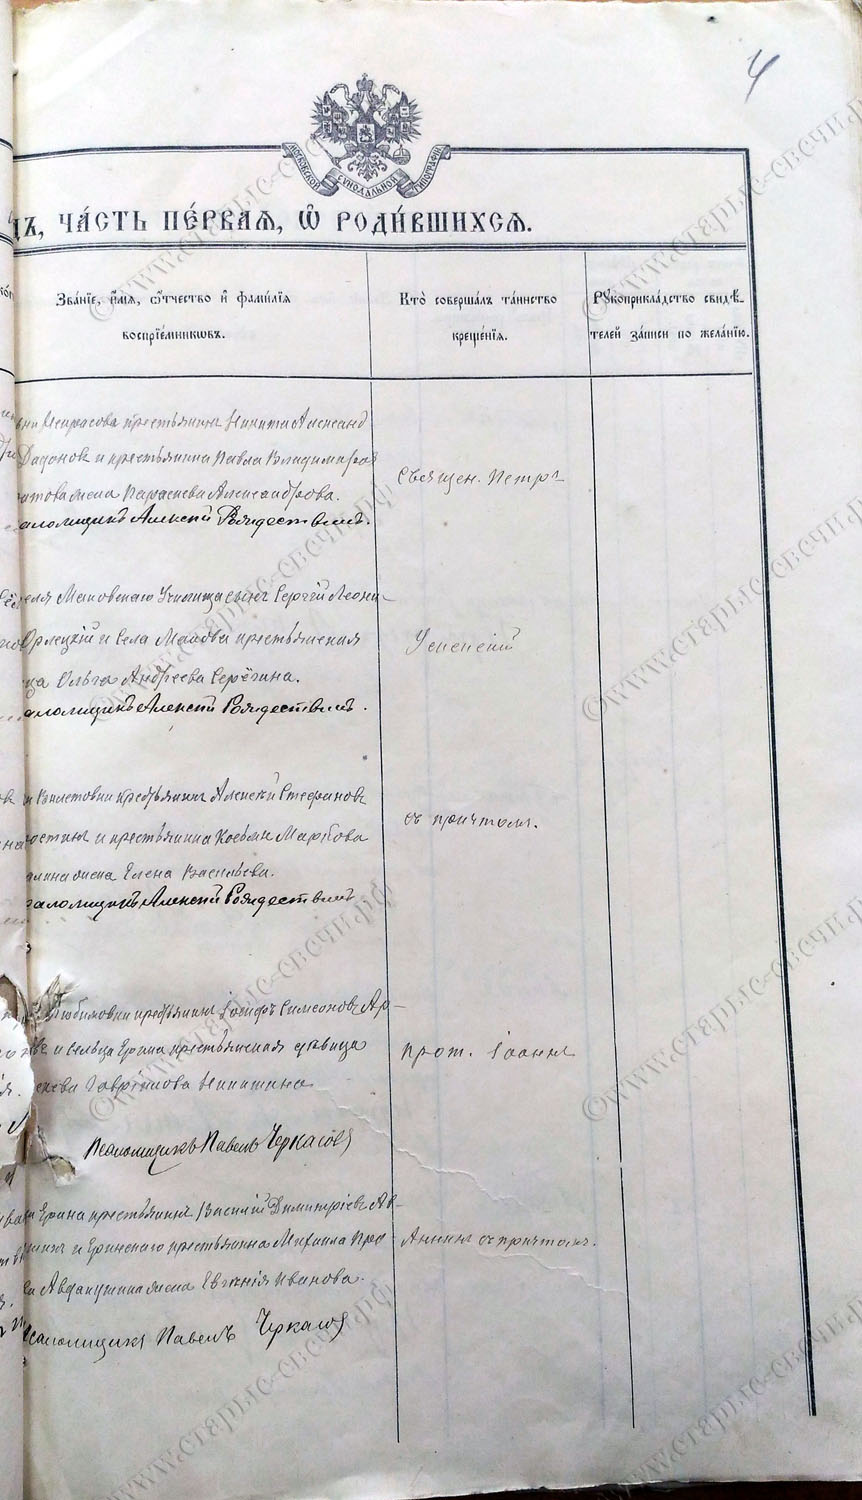 4
МОСКОВСКОЙ СѴНОДАЛЬНОЙ ТИПОГРАФІИ
ДЪ, ЧА́СТЬ ПЕ́РВАЯ, Ѽ РОДИ́ВШИХСЯ.
Зва́ніе, и҆́мя, ѻ҆́тчество и҆ фами́лія
воспріе́мникѡвъ.
Кто̀ соверша́лъ та́инство
креще́нія.
Рꙋкоприкла́дство свидѣ́-
телей за́писи по жела́нію.
крестьянинъ Никита Александ
Дадоновъ и крестьянина Павла Владимирова
жена Параскева Александрова.
аломщикъ Алексій Рождествинъ.
Священ. Петръ
еля Маковскаго Училища сынъ Сергѣй Леони-
Орлецкій и Села Макова крестьянская
ца Ольга Андреева Серёгина.
аломщикъ Алексій Рождествинъ.
Успенскій
крестьянинъ Алексѣй Стефановъ
и крестьянина Косьмы Маркова
жена Елена Васильева.
аломщикъ Алексій Рождествинъ
съ причтомъ.
Любимовки крестьянинъ Іосифъ Симеоновъ Ар-
и сельца Ерина крестьянская дѣвица
Гавріилова Никитина
Псаломщикъ Павелъ Черкасовъ
прот. Іоаннъ
Ерина крестьянинъ Василій Димитріевъ Ав-
и Еринскаго крестьянина Михаила Про-
ва Авдакушина жена Евгенія Иванова.
Псаломщикъ Павелъ Черкасовъ
Аннинъ съ причтомъ.
©www.старые-свечи.рф